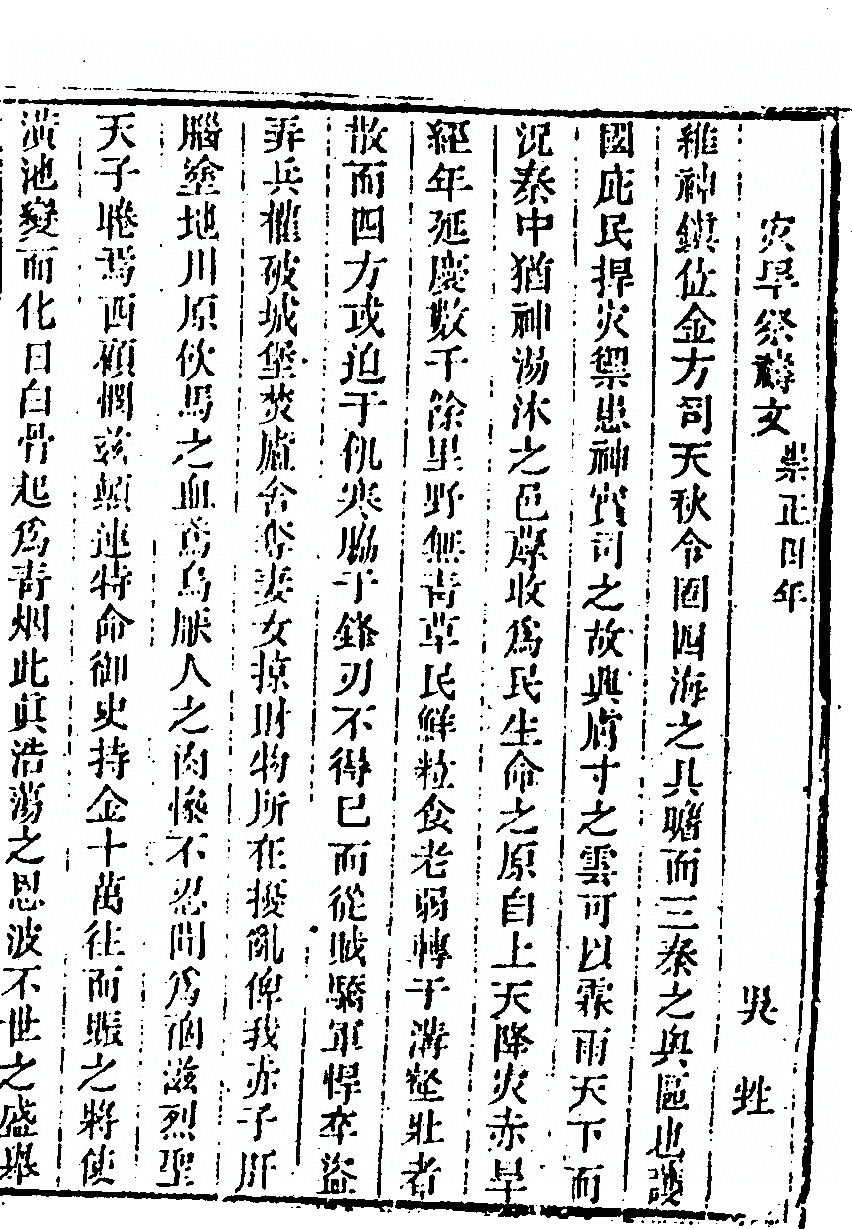 災旱祭禱文 崇正四年
吳甡
維神鎮位金方司天秋令固四海之具瞻而三秦之輿區也護
國庇民捍災禦患神實司之故輿膚寸之雲可以霖雨天下而
況秦中猶神湯沐之邑蓐收為民生命之原自上天降災赤旱
經年延慶數千餘里野無青草民鮮粒食老弱轉于溝壑壯者
散而四方或迫于饥寒脇于鋒刃不得已而從賊驕軍悍卒盜
弄兵權破城堡焚廬舍奪妻女掠財物所在擾亂俾我赤子肝
腦塗地川原飲馬之血鳶烏厭人之肉慘不忍聞為禍滋烈聖
天子睠焉西顧憫茲顛連特命御史持金十萬往而賑之將使
潢池變而化日白骨起為青烟此真浩蕩之恩波不世之盛舉